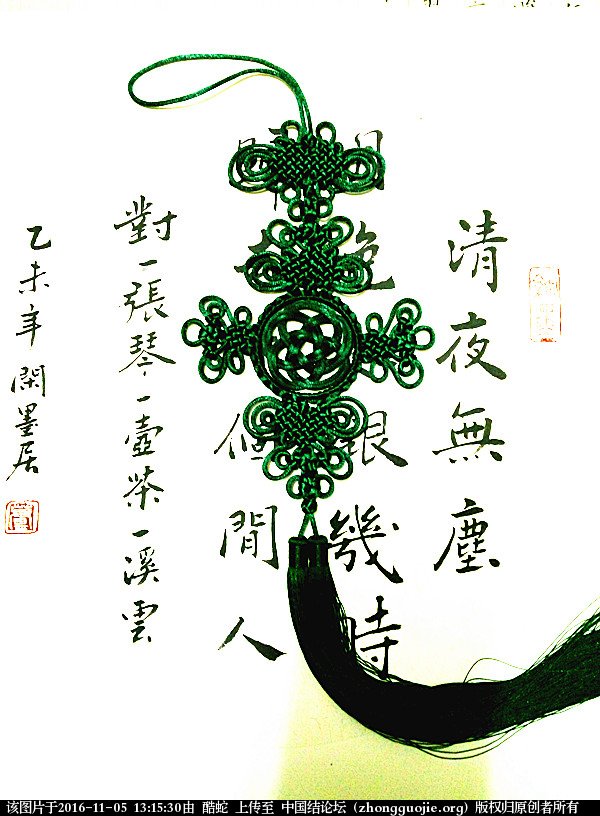 清夜無塵
色銀幾時
個閒人
對一張琴一壺茶一溪雲
乙未年閑墨居
该图片于2016-11-05 13:15:30由 酷蛇 上传至 中国结论坛 (zhongguojie.org) 版权归原创者所有